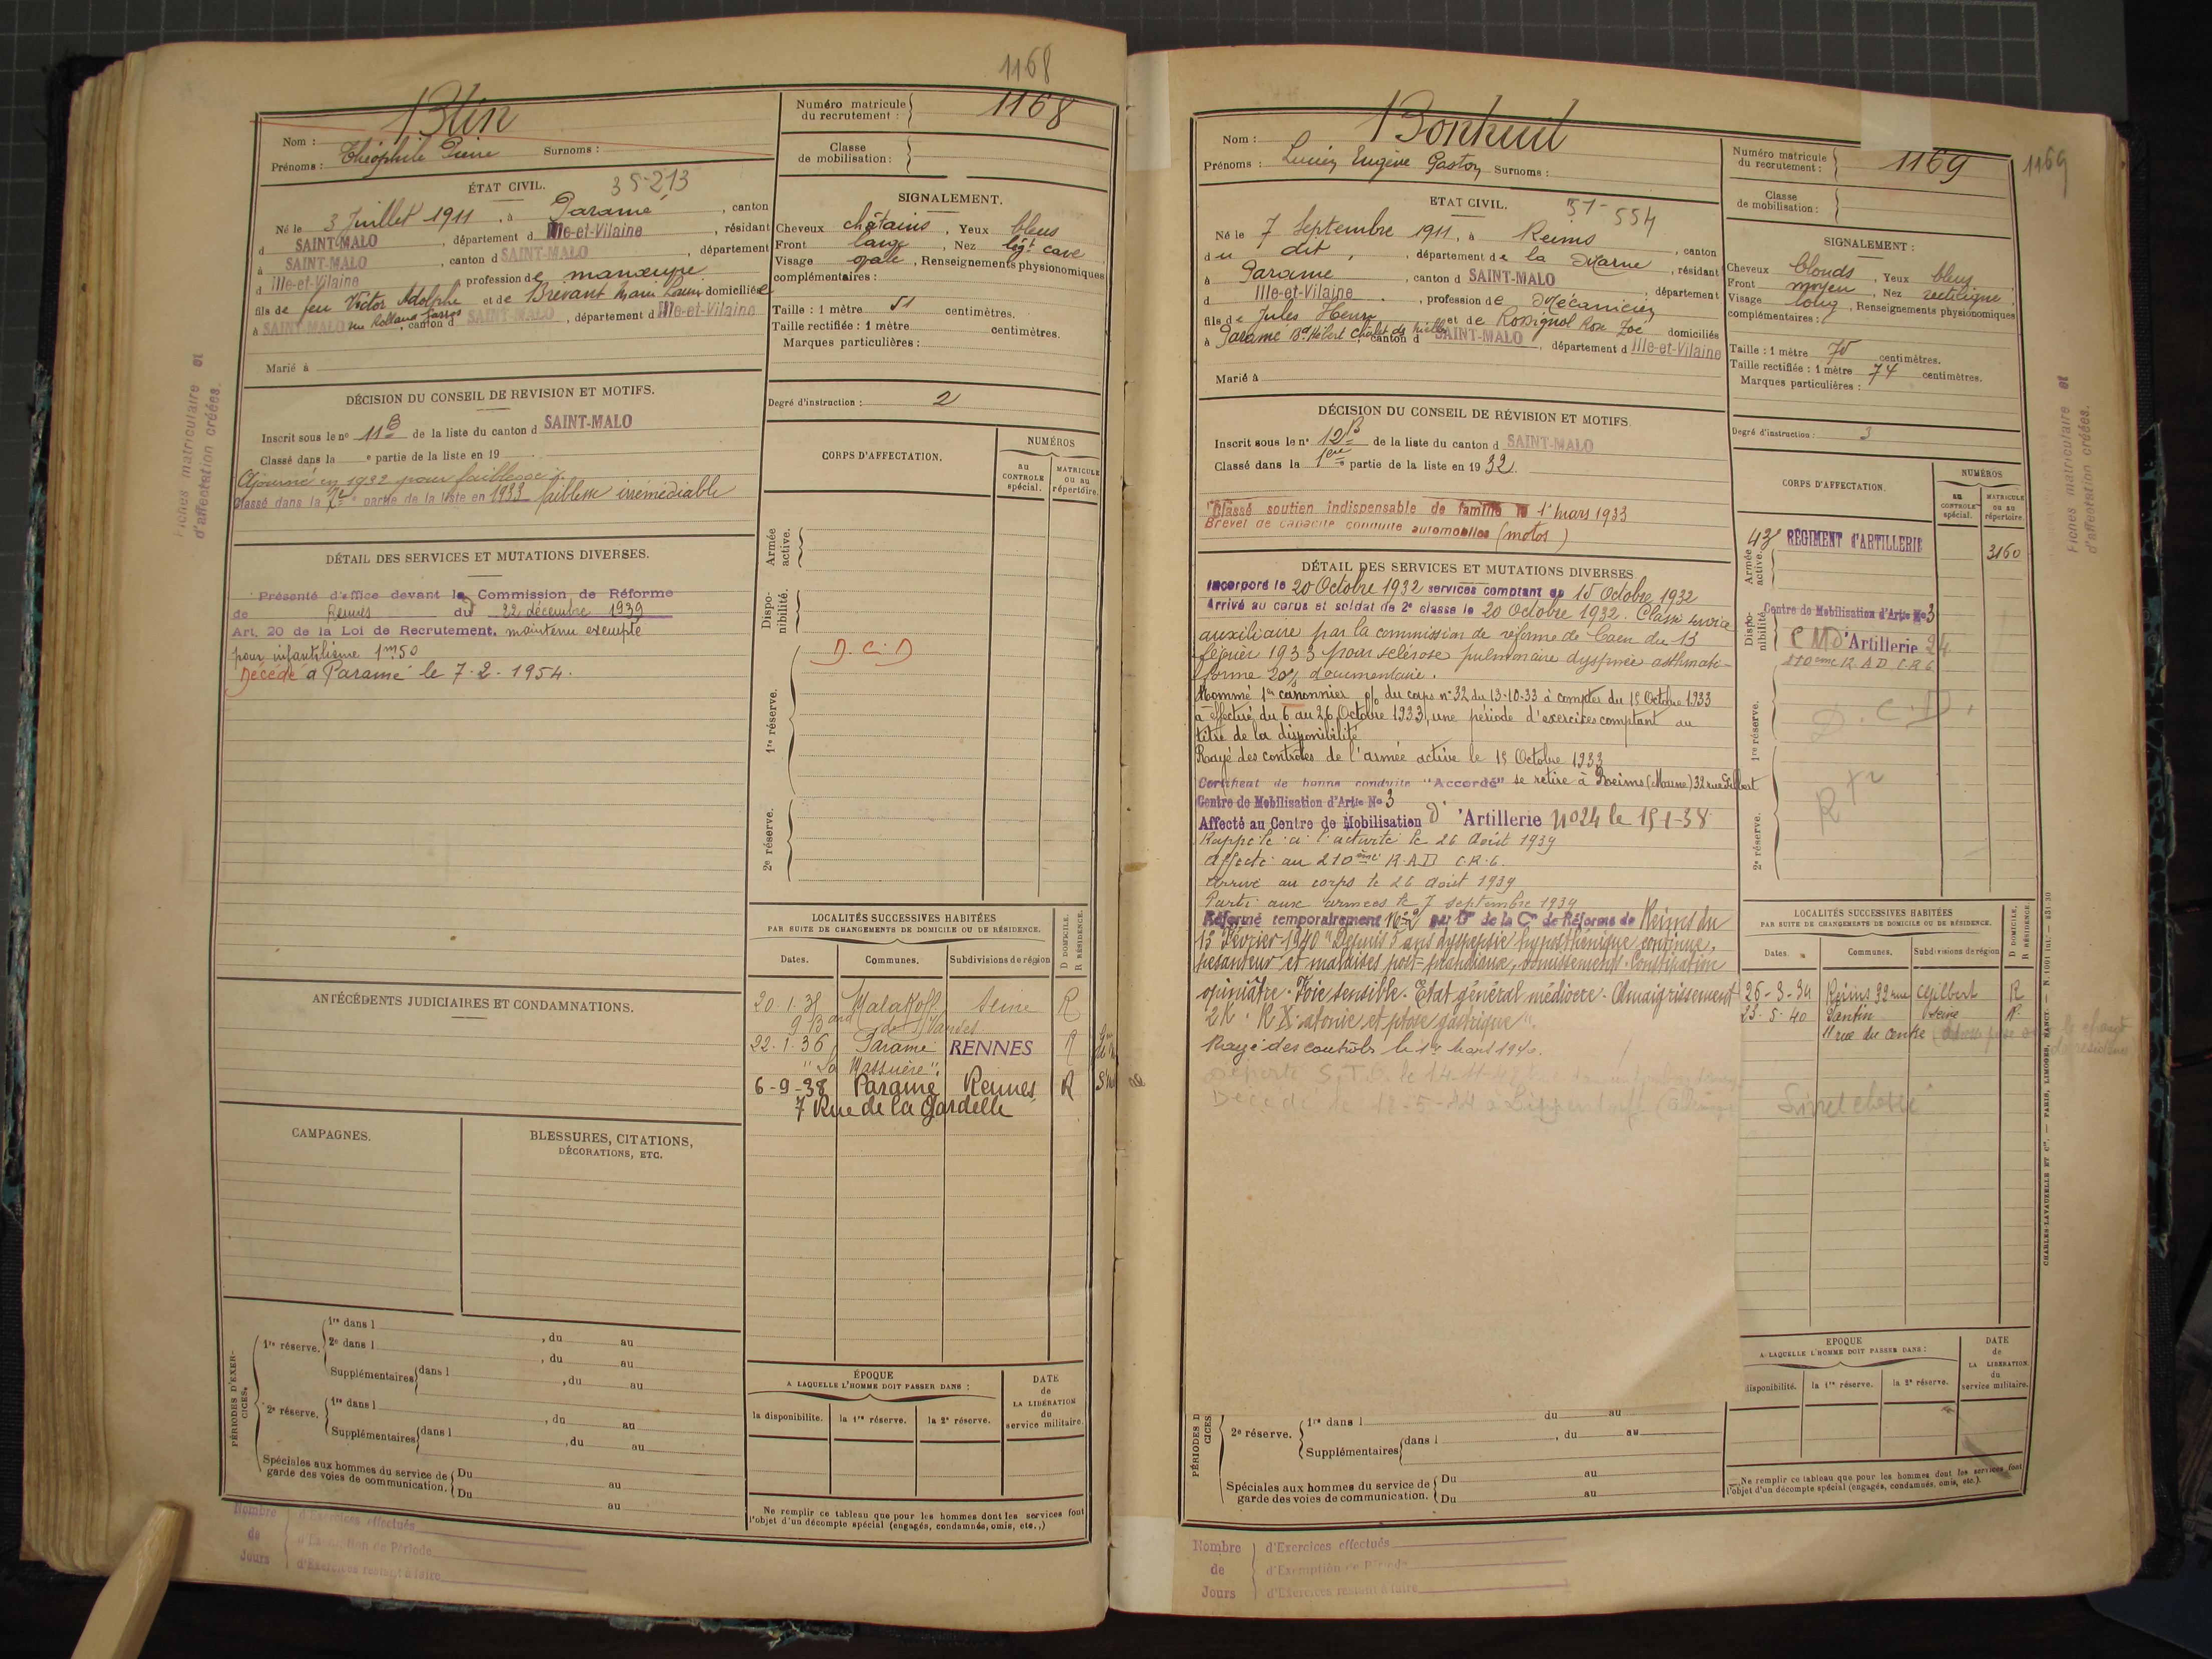 1168
Blin
Nom :
Prénoms : Théophile Pierre Surnoms :
Numéro matricule du recrutement : 1168
Classe de mobilisation :
ÉTAT CIVIL.
35-213
Né le 3 Juillet 1911, à Paramé, canton
d SAINT-MALO, département d Ille-et-Vilaine, résidant
à SAINT-MALO, canton d SAINT-MALO, département
d Ille-et-Vilaine profession de manœuvre
fils de feu Victor Adolphe et de Brévant Marie domiciliés
à SAINT-MALO rue Rolland Garros, canton d SAINT-MALO, département d Ille-et-Vilaine
Marié à
SIGNALEMENT.
Cheveux châtains, Yeux bleus
Front large, Nez légt cave
Visage ovale, Renseignements physionomiques
complémentaires :
Taille : 1 mètre 51 centimètres.
Taille rectifiée : 1 mètre centimètres.
Marques particulières :
Degré d'instruction : 2
DÉCISION DU CONSEIL DE REVISION ET MOTIFS.
Inscrit sous le no 11B de la liste du canton d SAINT-MALO
Classé dans la e partie de la liste en 19
Ajourné en 1932 pour faiblesse
Classé dans la 2e partie de la liste en 1933 faiblesse irrémédiable
DÉTAIL DES SERVICES ET MUTATIONS DIVERSES.
Présenté d'office devant la Commission de Réforme
de Rennes du 22 décembre 1939
Art. 20 de la Loi de Recrutement, maintenu exempté
pour infantilisme 1m50
Décédé à Paramé le 7.2.1954.
CORPS D'AFFECTATION.
NUMÉROS
au CONTROLE spécial.
MATRICULE ou au répertoire.
Armée active.
Disponibilité.
1re réserve.
D.C.D
2e réserve.
LOCALITÉS SUCCESSIVES HABITÉES
PAR SUITE DE CHANGEMENTS DE DOMICILE OU DE RÉSIDENCE.
D DOMICILE.
R RÉSIDENCE.
Dates. Communes. Subdivisions de région
20.1.31 Malakoff Seine R
22.1.36 Paramé RENNES R
6-9-38 Paramé Rennes R
7 Rue de la Gardelle
ANTÉCÉDENTS JUDICIAIRES ET CONDAMNATIONS.
CAMPAGNES.
BLESSURES, CITATIONS,
DÉCORATIONS, ETC.
PÉRIODES D'EXERCICES.
1re réserve. 1re dans l , du au
2e dans l , du au
Supplémentaires dans l , du au
2e réserve. 1re dans l , du au
Supplémentaires dans l , du au
Spéciales aux hommes du service de garde des voies de communication. Du au
Du au
ÉPOQUE
A LAQUELLE L'HOMME DOIT PASSER DANS :
la disponibilité. la 1re réserve. la 2e réserve.
DATE de LA LIBÉRATION du service militaire.
Ne remplir ce tableau que pour les hommes dont les services font
l'objet d'un décompte spécial (engagés, condamnés, omis, etc.,)
Nombre de Jours
d'Exercices effectués
d'Exemption de Période
d'Exercices restant à faire
Fiches matriculaire et
d'affectation créées.
Bonteuil
Nom :
Prénoms : Lucien Eugène Gaston Surnoms :
Numéro matricule du recrutement : 1169
1169
Classe de mobilisation :
ETAT CIVIL.
51-554
Né le 7 Septembre 1911, à Reims, canton
du dit, département de la Marne, résidant
à Paramé, canton d SAINT-MALO, département
d Ille-et-Vilaine, profession de Mécanicien
fils de Jules Henri et de Rossignol Rose Zoé domiciliés
à Paramé Bd Hébert Châlet des, canton d SAINT-MALO, département d Ille-et-Vilaine
Marié à
SIGNALEMENT :
Cheveux blonds, Yeux bleus
Front moyen, Nez rectiligne
Visage long, Renseignements physionomiques
complémentaires :
Taille : 1 mètre 75 centimètres.
Taille rectifiée : 1 mètre 74 centimètres.
Marques particulières :
Degré d'instruction : 3
DÉCISION DU CONSEIL DE RÉVISION ET MOTIFS.
Inscrit sous le n° 12B de la liste du canton d SAINT-MALO
Classé dans la 1ère partie de la liste en 1932.
Classé soutien indispensable de famille le 1er mars 1933
Brevet de capacité conduite automobiles (motos)
DÉTAIL DES SERVICES ET MUTATIONS DIVERSES.
Incorporé le 20 Octobre 1932 services comptant du 15 Octobre 1932
Arrivé au corps et soldat de 2e classe le 20 Octobre 1932. Classé service
auxiliaire par la commission de réforme de Caen du 13
février 1933 pour sclérose pulmonaire dyspnée asthmati-
forme 20% documentaire.
Nommé 1er canonnier o/o du corps n°32 du 13-10-33 à compter du 15 Octobre 1933
a effectué du 6 au 26 Octobre 1933, une période d'exercices comptant au
titre de la disponibilité
Rayé des contrôles de l'armée active le 15 Octobre 1933
Certificat de bonne conduite "Accordé" se retire à Reims (Marne) 32 rue Gilbert
Centre de Mobilisation d'Artie No 3
Affecté au Centre de Mobilisation d'Artillerie No24 le 15-1-38
Rappelé à l'activité le 26 Août 1939
Affecté au 210ème R.A.D C.R.6.
Arrivé au corps le 26 Août 1939
Parti aux armées le 7 septembre 1939
Réformé temporairement No 2 par Don de la Con de Réforme de Reims du
13 Février 1940 "Depuis 5 ans dyspepsie hyposthénique continue,
pesanteur et malaises post-prandiaux, vomissements. Constipation
opiniâtre. Foie sensible. Etat général médiocre. Amaigrissement
2K. RX: atonie et ptose gastrique".
Rayé des contrôles le 1er Mars 1940.
Déporté S.T.O. le 14-11-42
Décédé le 12-5-44 à
CORPS D'AFFECTATION.
NUMÉROS
au CONTROLE spécial.
MATRICULE ou au répertoire.
Armée active.
43e RÉGIMENT d'ARTILLERIE 3160
Disponibilité.
Centre de Mobilisation d'Artie No 3
C M d'Artillerie 24
210ème R.A.D C.R.6.
1re réserve.
D.C.D.
2e réserve.
LOCALITÉS SUCCESSIVES HABITÉES
PAR SUITE DE CHANGEMENTS DE DOMICILE OU DE RÉSIDENCE.
D DOMICILE.
R RÉSIDENCE.
Dates. Communes. Subdivisions de région
26-3-34 Reims 32 rue Gilbert R
23-5-40 Pantin Seine R
11 rue du Centre
Livret classé
PÉRIODES D CICES
2e réserve. 1re dans l du au
Supplémentaires dans l , du au
Spéciales aux hommes du service de garde des voies de communication. Du au
Du au
EPOQUE
A LAQUELLE L'HOMME DOIT PASSER DANS :
disponibilité. la 1re réserve. la 2e réserve.
DATE de LA LIBERATION du service militaire.
Ne remplir ce tableau que pour les hommes dont les services font
l'objet d'un décompte spécial (engagés, condamnés, omis, etc.).
Nombre de Jours
d'Exercices effectués
d'Exemption de Période
d'Exercices restant à faire
Fiches matriculaire et
d'affectation créées.
CHARLES-LAVAUZELLE ET Cie. — PARIS, LIMOGES, NANCY.